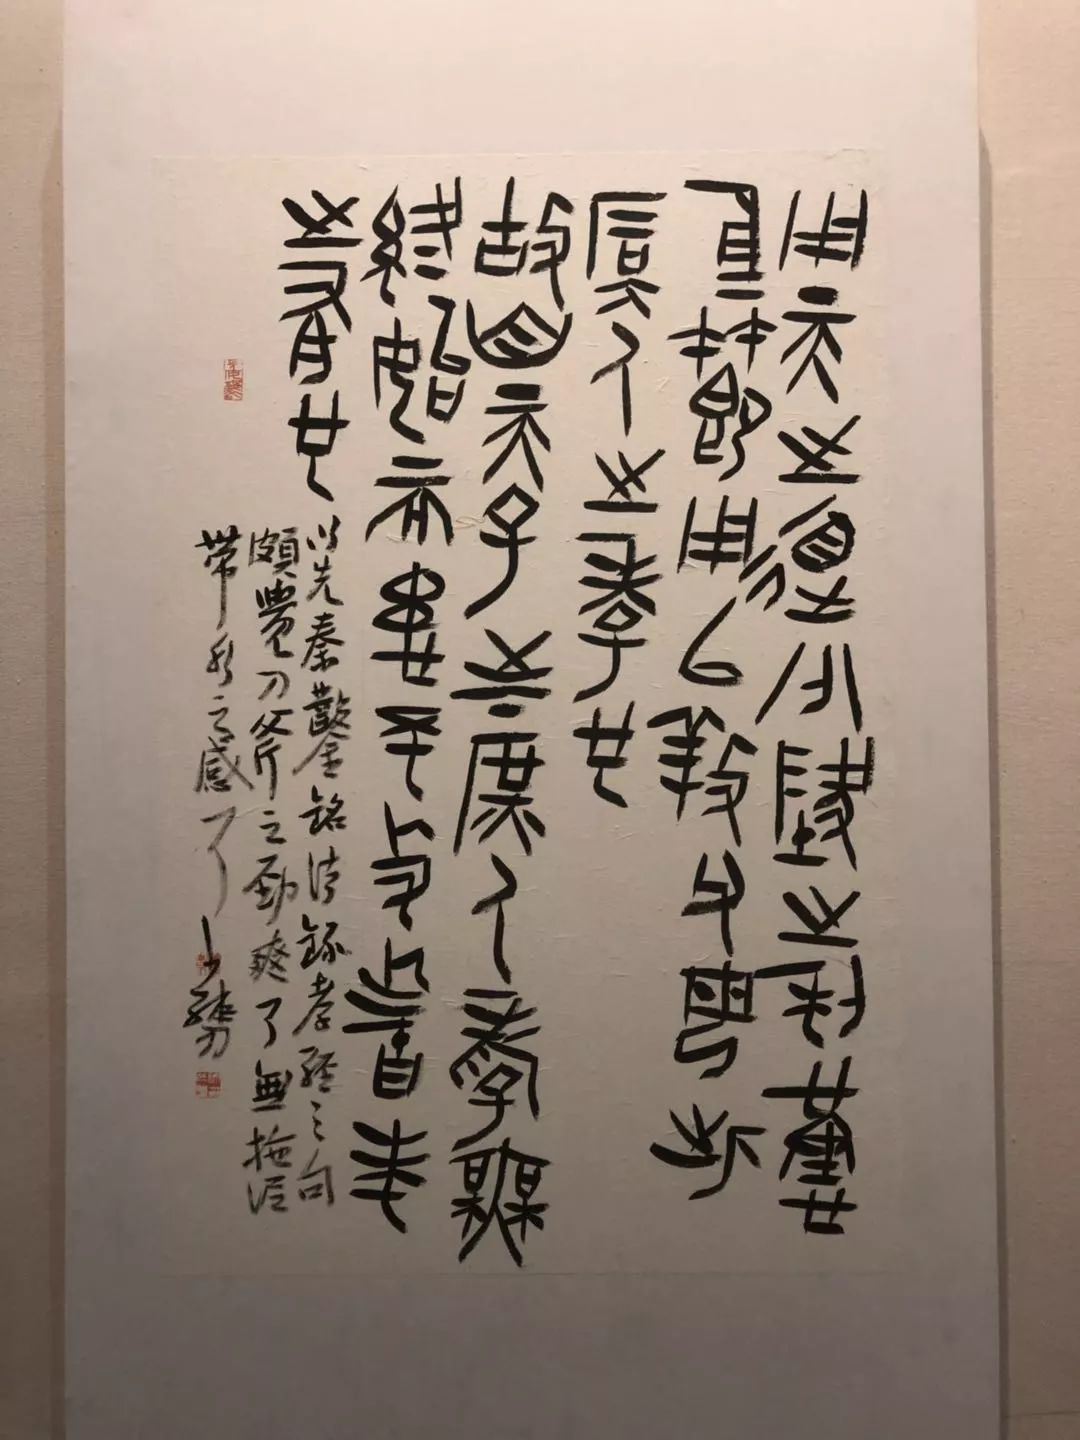 用天之道分地之利謹
身節用以養父母此
庶人之孝也
故自天子至于庶人孝無
終始而患不及者未
之有也
以先秦鑿金銘法錄孝經之句
頗覺刀斧之勁爽了無拖泥
帶水之感了